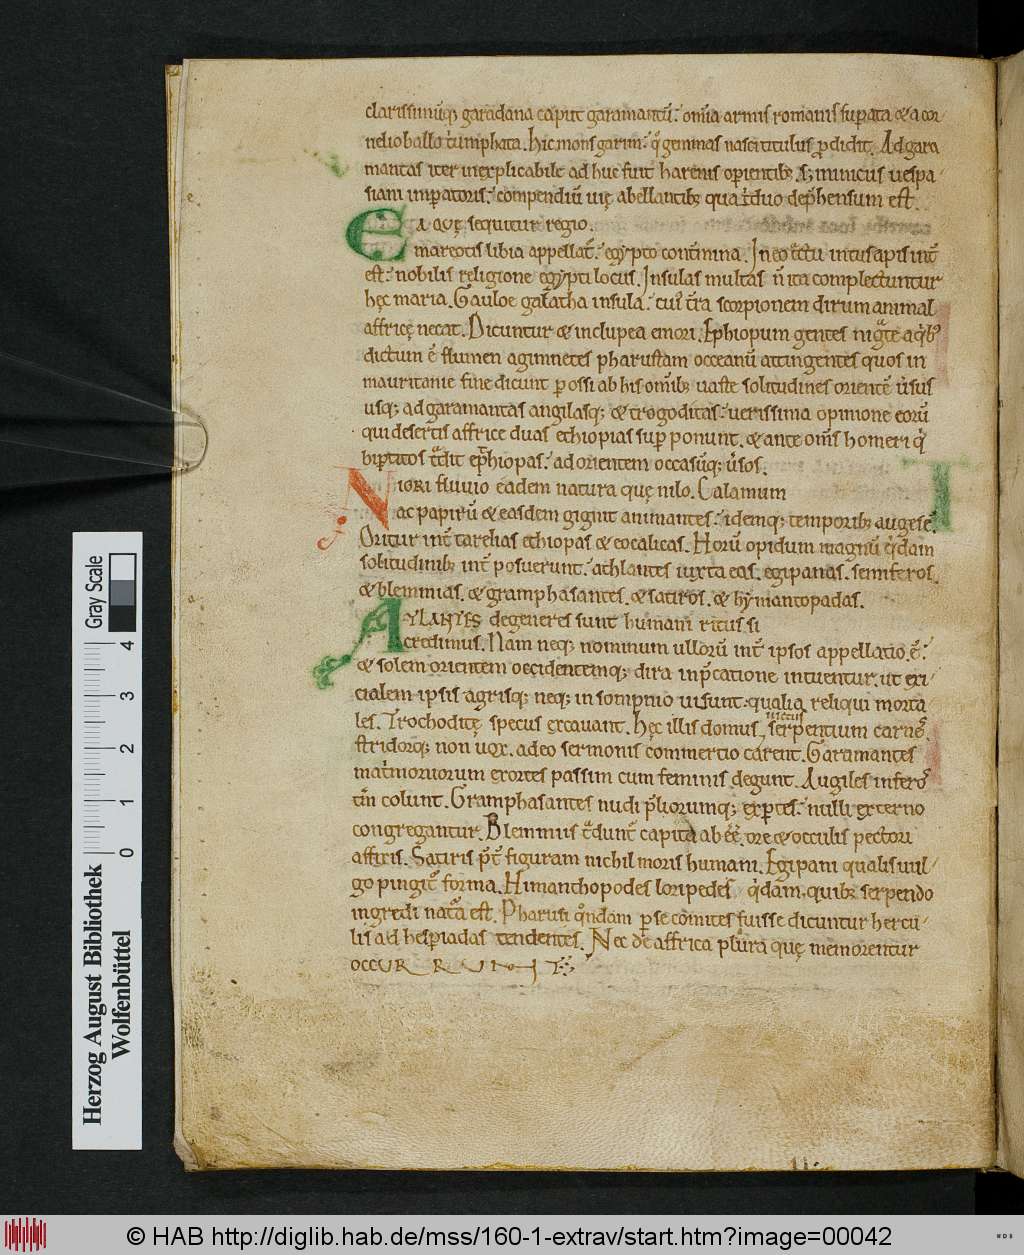 clarissimūq; garadana caput garamantū. om̄ia armis romanis suꝑata & a cor
nelio ballo tumphata. Hic mons garim. q̄ gemmas nasci titulus ꝓdidit. Ad gara
mantas iter inexplicabile ad huc fuit harenis oꝑientib; s; inimicus uespa
siani imꝑatoris. compendiū uię abellantib; quatͥduo dep̄hensum est.
EA QVę sequitur regio.
mareotis libia appellat̄. egypto cont̄mina. In eo tͣctu intus apis int̄
est. nobilis religione egypti locus. Insulas multas n̄ ita complectuntur
hęc maria. Gauloe gal̄atha insula. cuꝰ t̄ra scorpionem dirum animal
affricę necat. Dicuntur & inclupea emori. Ephiopum gentes nigͣte aqͥbꝰ
dictum ē flumen agimnetes pharusiam occeanū attingentes quos in
mauritanie fine dicunt ꝑossi ab his om̄ib; uaste solitudines orientē ūsus
usq; ad garamantas angilasq; & trogoditas. uerissima opinione eorū
qui desertis affrice duas ethiopias suꝑ ponunt. & ante om̄s homeri qͥ
biꝑtitos tͣdit ephiopas. ad orientem occasūq; ūsos.
NIGRI fluuio eadem natura quę nilo. Calamum
ac papirū & easdem gignit animantes. idemq; temporib; augesc̄.
Oritur int̄ tarelias ethiopas & eocalicas. Horū opidum magnū qͥdam
solitudinib; int̄ posuerunt. athlantes iuxta eas. egipanas. semiferos.
& blemmias. & gramphasantes. & satiros. & hymantopadas.
ATLANTES degeneres sunt humani ritus si
credimus. Nam neq; nominum ullorū int̄ ipsos appellatio. ē.
& solem orientem occidentemq; dira inp̄catione intuentur. ut exi
cialem ipsis agrisq; neq; in sompnio uisunt. qualia reliqui morta
les. Trochoditę specus excauant. hęc illis domus, uictus serpentium carnes.
stridorq; non uox. adeo sermonis commertio carent. Garamantes
matͥmoniorum exortes passim cum feminis degunt. Augiles inferos
tm̄ colunt. Gramphasantes nudi p̄liorumq; exꝑtes. nulli externo
congregantur. Blemmiis tͣdunt̄ capita abēē. ore & occulis pectori
affixis. Satiris p̄t̄ figuram nichil moris humani. Egipani qualis uul
go pingit̄ forma. Himanthopodes loripedes qͥdam. quib; serpendo
ingredi natͣa est. Pharusi qͦndam ꝑse comites fuisse dicuntur hercu
lis ad hesꝑiadas tendentes. Nec de affrica plura quę memorentur
OCCURRUNT
Herzog August Bibliothek
Wolfenbüttel
Gray Scale
0 1 2 3 4
© HAB http://diglib.hab.de/mss/160-1-extrav/start.htm?image=00042